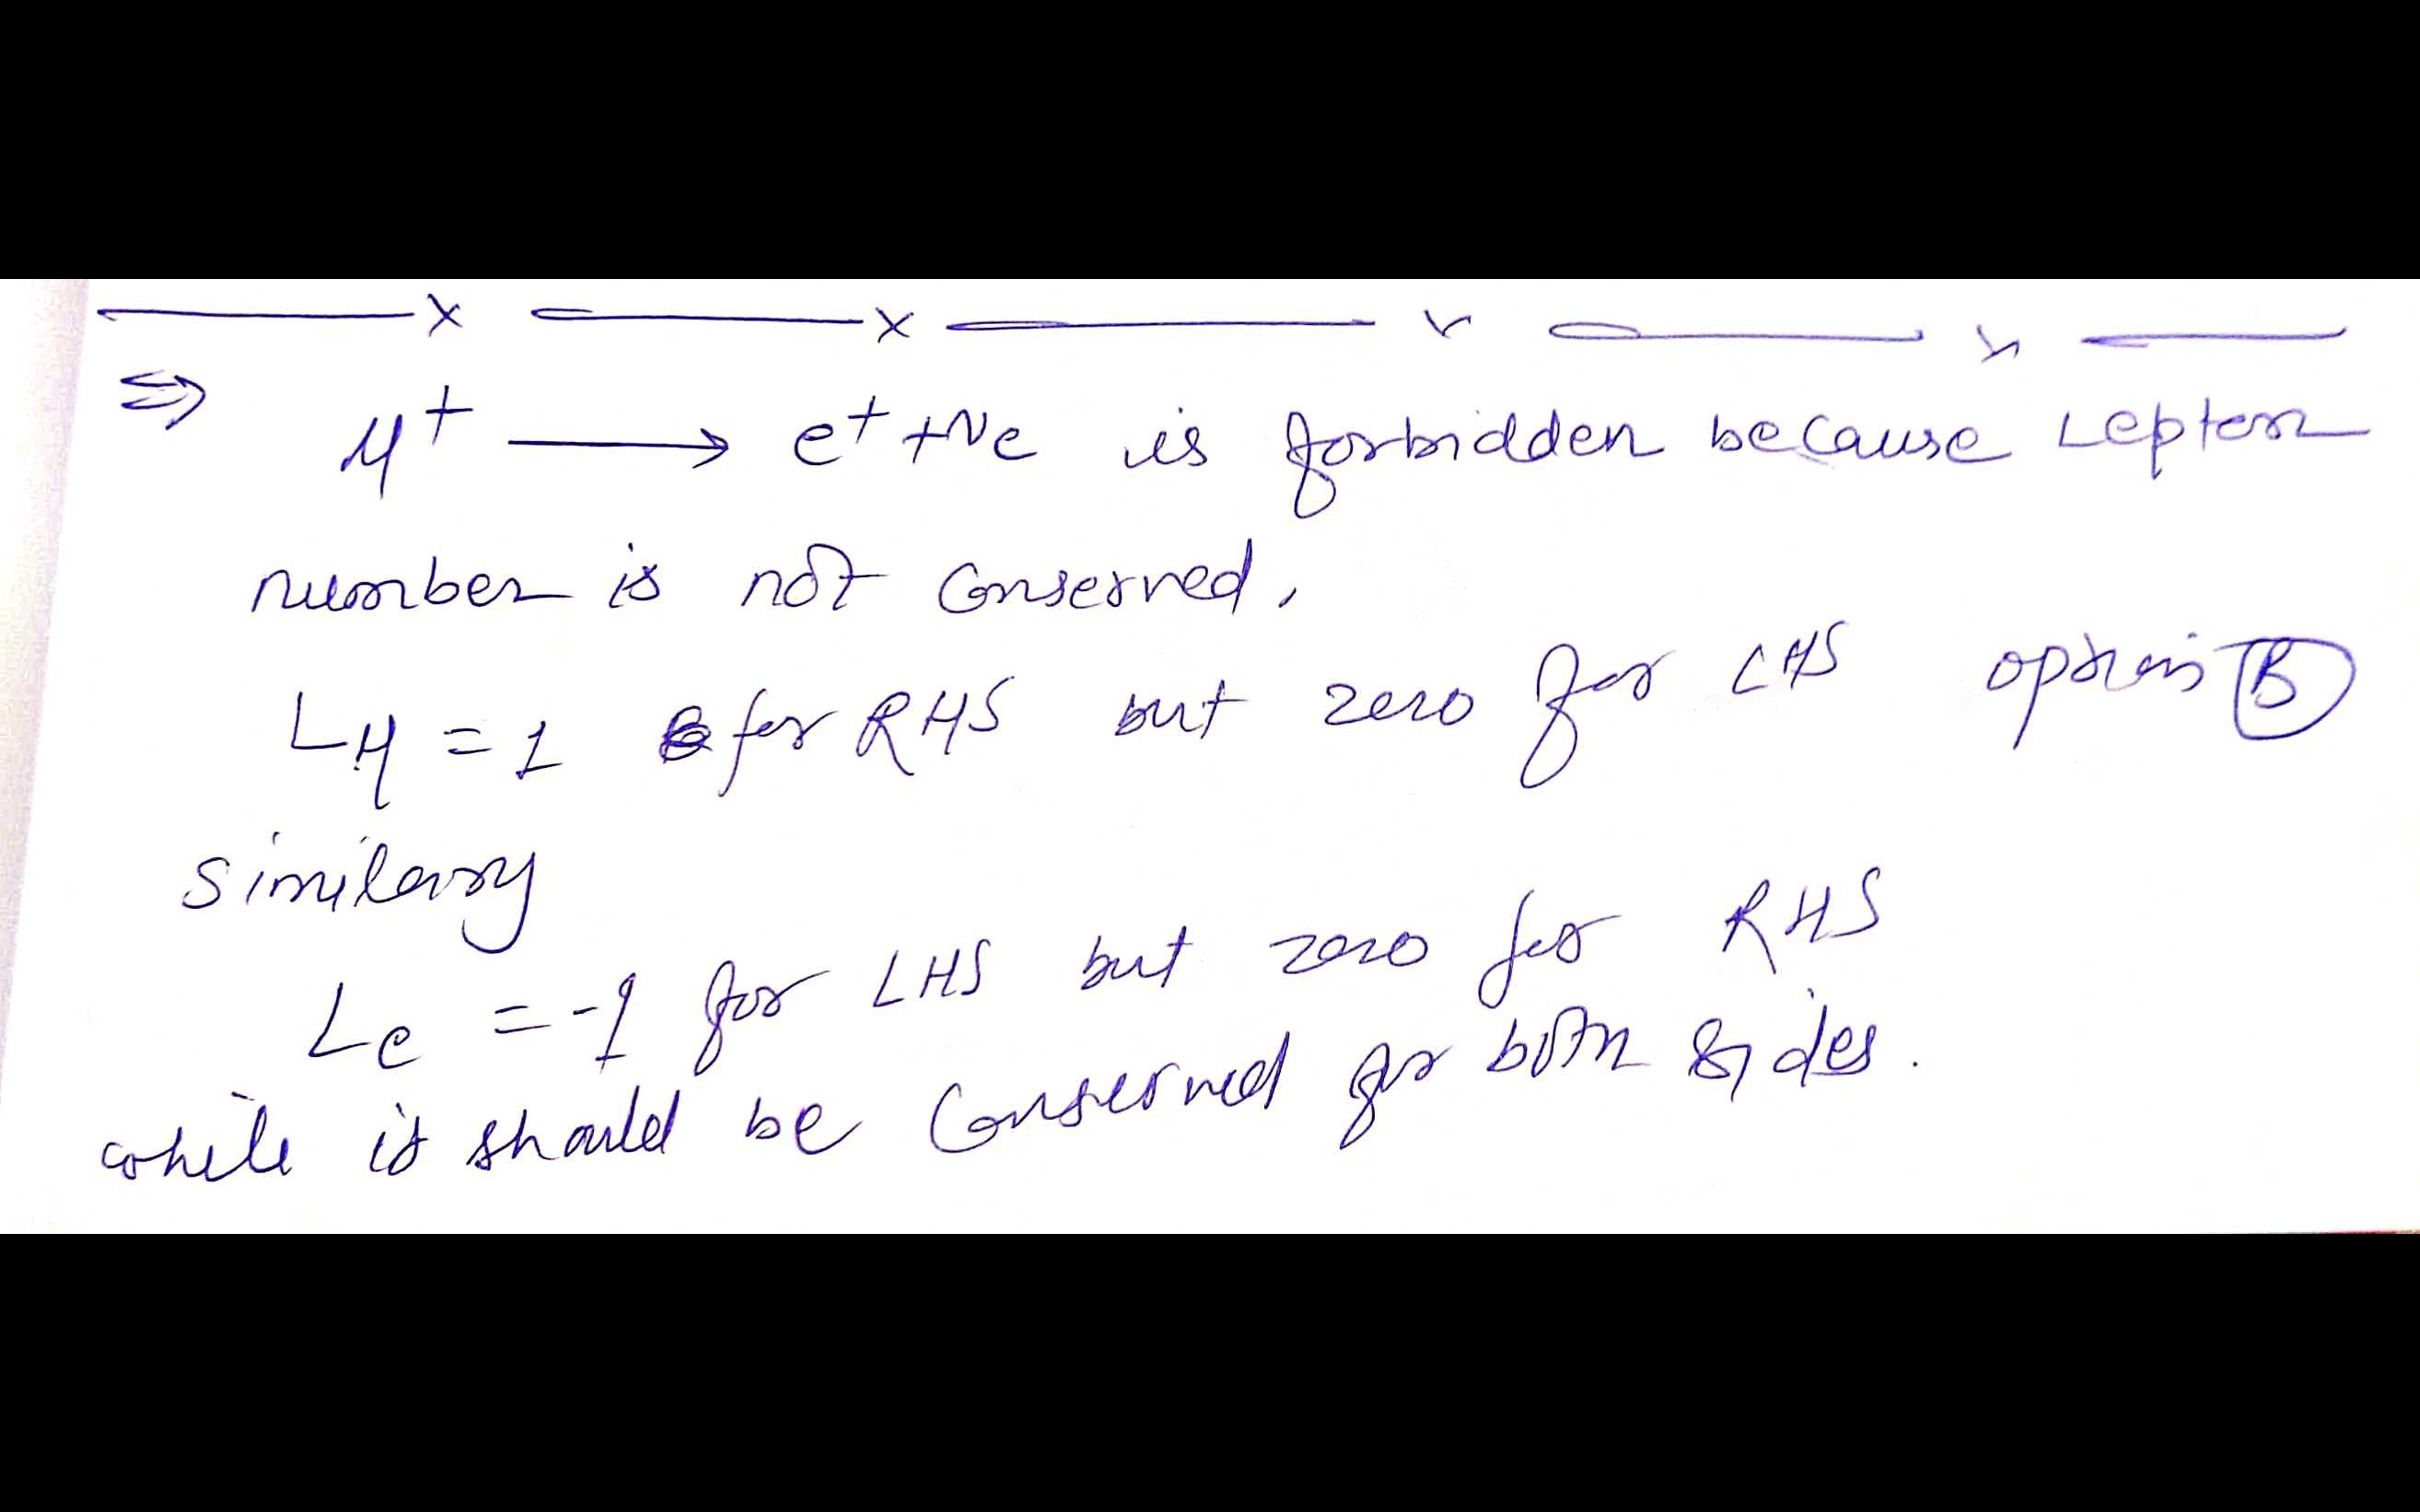 ⇒ μ+ ⟶ e+ + νe is forbidden because Lepton
number is not conserved.
Lμ = 1 for RHS but zero for LHS option B
similary
Le = -1 for LHS but zero for RHS
while it should be conserved for both sides.